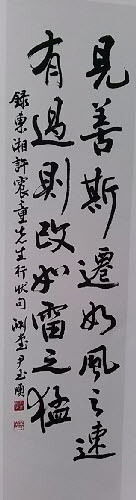 見善斯遷如風之速
有過則改如雷之猛
錄東湘許震童先生行狀句 湖堂尹玉順